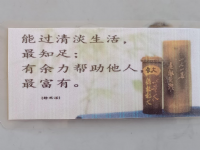 能过清淡生活，
最知足；
有余力帮助他人，
最富有。